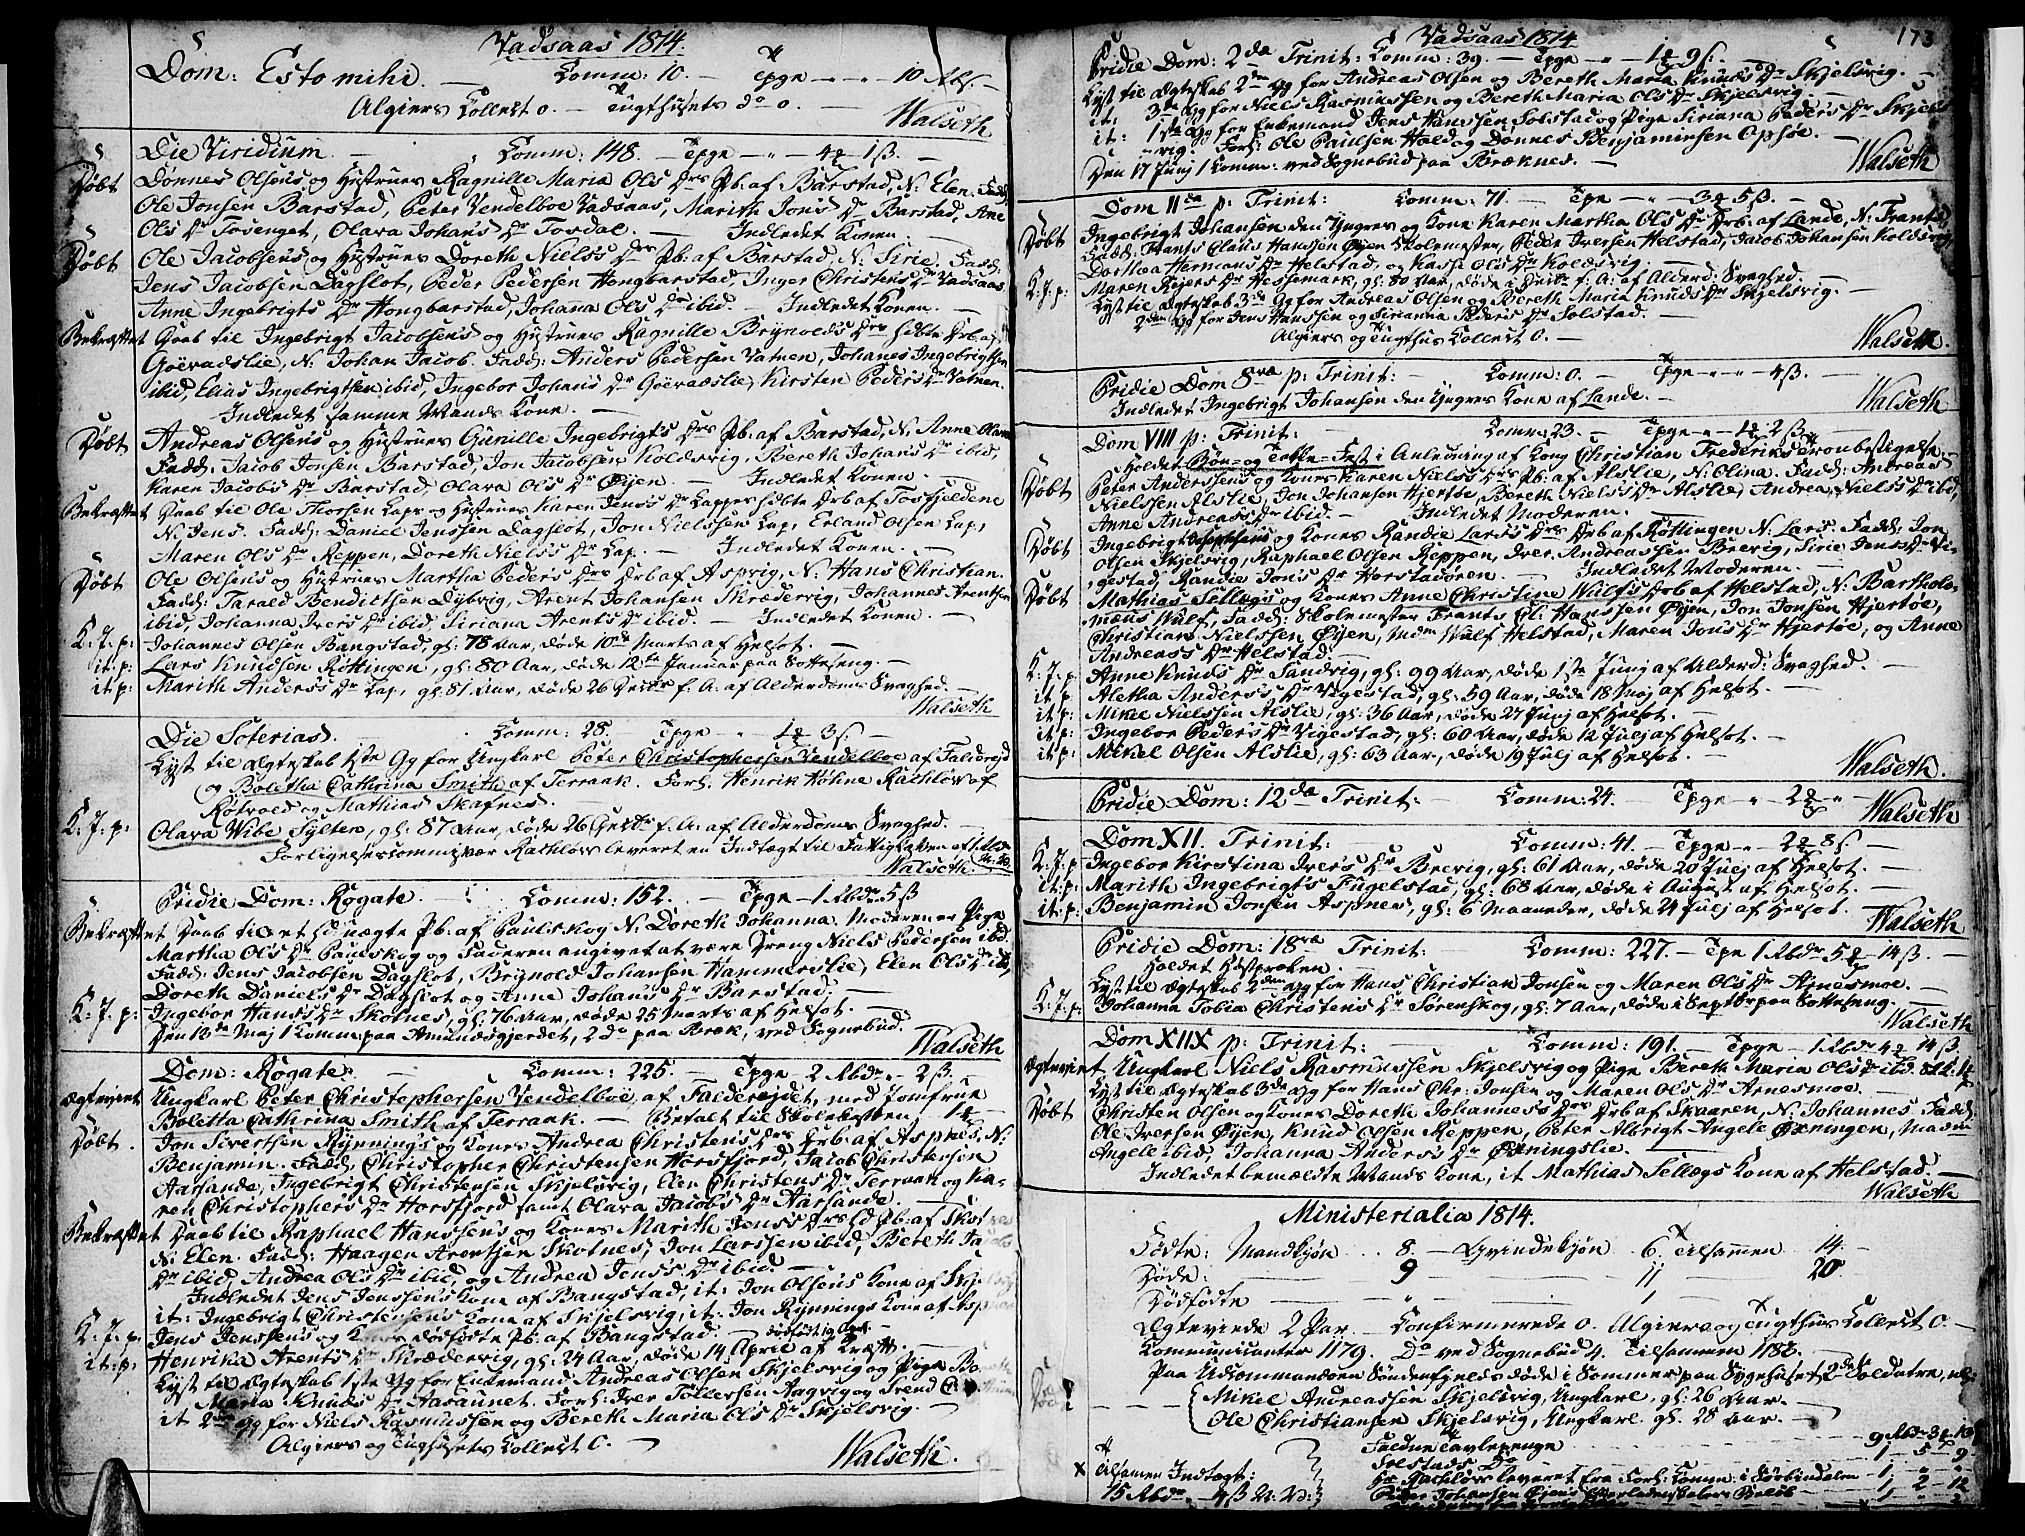 Vadsaas 1814.
Dom: Esto mihi. — Comm: 10. — Tpge — " — 10 Abs. —
Algiers Collect 0. — Tugthusets do 0. —
Walseth
Die Viridium. — Comm: 148. — Tpge — " — 4 — 1 ß. —
Døbt Dønnes Olsens og Hustrues Ragnille Maria Ols Drs Pb: af Barstad, N: Elen. Fadd:
Ole Jonsen Barstad, Peter Vendelboe Vadsaas, Marith Jons Dr Barstad, Ane
Ols Dr Tosenget, Olava Johans Dr Tosdal. — Indledet Konen. —
Døbt Ole Jacobsens og Hustrues Doreth Niels's Drs Pb: af Barstad, N: Sirie. Fadd:
Jens Jacobsen Dagslot, Peder Pedersen Hongbarstad, Inger Christens Dr Vadsaas
Anne Ingebrigts Dr Hongbarstad, Johanna Ols Dr ibid. — Indledet Konen. —
Bekræftet Daab til Ingebrigt Jacobsens og Hustrues Ragnille Brynolds Drs hdbte Drb: af
Goëvadslie, N: Johan Jacob. Fadd: Anders Pedersen Vatnen, Johanes Ingebrigtsen
ibid, Elias Ingebrigtsen ibid, Ingebor Johans Dr Goëvadslie, Kirsten Peders Dr Vatnen.
Indledet samme Mands Kone. —
Døbt Andreas Olsens og Hustrues Gunille Ingebrigts Drs Pb: af Barstad, N: Anne Olava
Fadd: Jacob Jonsen Barstad, Jon Jacobsen Koldsvig, Bereth Johans Dr ibid,
Karen Jacobs Dr Barstad, Olava Ols Dr Øijen. — Indledet Konen. —
Bekræftet Daab til Ole Thorsen Laps og Hustrues Karen Jens's Dr Lappes hdbte Drb: af Tosfjeldene
N: Jens. Fadd: Daniel Jenssen Dagslot, Jon Nielssen Lap, Erland Olsen Lap,
Maren Ols Dr Reppen, Doreth Niels's Dr Lap. — Indledet Konen. —
Døbt Ole Olsens og Hustrues Martha Peders Drs Drb: af Aspvig, N: Hans Christian.
Fadd: Tarald Bendictsen Dybvig, Arent Johansen Skrædervig, Johannes Arentsen
ibid, Johanna Ivers Dr ibid, Siriana Arents Dr ibid. — Indledet Konen. —
K: J: p: Johannes Olsen Bangstad, gl: 78 Aar, døde 10de Marts af Helsot. —
it: p: Lars Knudsen Røttingen, gl: 80 Aar, døde 12te Januar paa Sotteseng. —
it: p: Marith Anders's Dr Lap, gl: 81 Aar, døde 26 Decbr f. A: af Alderdoms Svaghed. —
Walseth
Die Soterias. Comm: 28. Tpge — " 1 — 3 ß —
Lyst til Ægteskab 1ste Gg for Ungkarl Peter Christophersen Vendelboe af Falderejd
og Boletha Cathrina Smith af Terraak. Forl: Henrik Høhne Rachløw af
Røtvold og Mathias Skafnes. —
K: J: p: Olava Wibe Sylten, gl: 87 Aar, døde 26 Decbr f. A: af Alderdoms Svaghed. —
Forligelsescommissær Rachløw leveret en Indtægt til Fattigkassen af 1 Rbdr
Walseth.
Pridie Dom: Rogate. — Comm: 152. — Tpge — 1 Rbdr 5 ß
Bekræftet Daab til et hd uægte Pb: af Paulskog N: Doreth Johanna. Moderen er Pige
Martha Ols Dr Paulskog og Faderen angivet at være Dreng Niels Pedersen ibd.
Fadd: Jens Jacobsen Dagslot, Brynold Johansen Hammerislie, Elen Ols Dr ibd,
Doreth Daniels Dr Dagslot og Anne Johans Dr Barstad. —
K: J: p: Ingebor Hans's Dr Skotnes, gl: 76 Aar, døde 25 Marts af Helsot. —
Den 13de Maj 1 Komm: paa Amundsgjerdet, 2 do paa Bræk, ved Sognebud.
Walseth
Dom: Rogate. — Comm: 225. — Tpge — 2 Rbdr — 2 ß. —
Ægteviet Ungkarl Peter Christophersen Vendelboe, af Falderejdet, med Jomfrue
Boletta Cathrina Smith af Terraak. — Betalt til Skolekassen 1
Døbt. Jon Sivertsen Rynnings og Kones Andrea Christens Drs Drb: af Aspnes, N:
Benjamin. Fadd: Christopher Christensen Horsfjord, Jacob Christensen
Aarsande, Ingebrigt Christensen Skjelsvig, Elen Christens Dr Terraak og Ka-
ren Christophers Dr Horsfjord samt Olava Jacobs Dr Aarsande. —
Bekræftet Daab til Raphael Hanssens og Kones Marith Jens's Drs hd Pb: af Skotnes
N: Elen. Fadd: Haagen Arentsen Skotnes, Jon Larssen ibid, Bereth Jacobs
Dr ibid, Andrea Ols Dr ibid, og Andrea Jens's Dr ibid. —
Indledet Jens Jenssens Kone af Bangstad, it: Jon Olsens Kone af
it: Ingebrigt Christensens Kone af Skjelsvig, it: Jon Rynnings Kone af Aspnes
K: J: p: Jens Jenssens og Kones dødfødte Pb: af Bangstad. —
it: p: Henrika Arents Dr Skrædervig, gl: 24 Aar, døde 14 April af
Lyst til Ægteskab 1ste Gg for Enkemand Andreas Olsen Skjelsvig og Pige
Maria Knuds Dr Aasaunet. Forl: Iver Tøllefsen Aagvig og Trend
it 2den Gg for Niels Rasmussen og Bereth Maria Ols Dr Skjelsvig. —
Algiers og Tugthusets Collect 0. —
Walseth.
Vadsaas 1814
173
Pridie Dom: 2da Trinit: Comm: 39. — Tpge — " — 1 9 ß. —
Lyst til Ægteskab 2den Gg for Andreas Olsen og Bereth Maria Knuds Dr Skjelsvig. —
it: 3de Gg for Niels Rasmussen og Bereth Maria Ols Dr Skjelsvig. —
it: 1ste Gg for Enkemand Jens Hanssen Solstad og Pige Siriana Peders Dr Skjels-
vig. Forl: Ole Paulsen Hold og Dønnes Benjaminsen Opsøe. —
Den 17 Junj 1 Komm: ved Sognebud paa Bræknes. —
Walseth
Dom IIda p: Trinit: Comm: 71. — Tpge — " — 3 5 ß. —
Døbt Ingebrigt Johansen den Yngres og Kone Karen Martha Ols Dr Drb: af Lande, N: Frants
Fadd: Frants Claus Hanssen Øijen Skolemester, Peder Iversen Helstad, Jacob Johansen Koldsvig,
Dorthea Hermans Dr Helstad, og Kasse Ols Dr Koldsvig. —
K: J: p: Maren Rejers Dr Hessemark, gl: 80 Aar, døde i Decbr f. A: af Alderd: Svaghed. —
Lyst til Ægteskab 3de Gg for Andreas Olsen og Bereth Maria Knuds Dr Skjelsvig. —
2den Gg for Jens Hanssen og Sirianna Peders Dr Solstad. —
Algiers og Tugthus Collect 0. —
Walseth.
Pridie Dom 8va p: Trinit: Comm: 0. — Tpge — " — " — 4 ß. —
Indledet Ingebrigt Johansen den Yngres Kone af Lande. —
Walseth
Dom VIII p: Trinit: Comm: 23. — Tpge — " — 1 2 ß —
Holdet Bøn- og Takke-Fest i Anledning af Kong Christian Frederiks Tronbestigelse. —
Døbt Peter Anderssens og Kones Karen Niels's Drs Pb: af Alslie, N: Olina. Fadd: Andreas
Nielssen Alslie, Jon Johansen Hjertøe, Bereth Niels's Dr Alslie, Andrea Niels's Dr ibid,
Anne Andreas's Dr ibid. — Indledet Moderen. —
Døbt Ingebrigt Josephsens og Kones Randie Lars's Drs Drb af Røttingen N: Lars. Fadd: Jon
Olsen Skjelsvig, Raphael Olsen Reppen, Iver Andreassen Brevig, Sirie Jens's Dr Vi-
gestad, Randie Jons Dr Horstadøren. — Indledet Moderen. —
Døbt Mathias Sellegs og Kones Anne Christine Wulfs Drb af Helstad, N: Bartholo-
mæus Wulf, Fadd: Skolemester Frants Cl: Hanssen Øijen, Jon Jonsen Hjertøe,
Christian Nielssen Øijen, Mdm Wulf Helstad, Maren Jons Dr Hjertøe, og Anne
Andreas's Dr Helstad. —
K: J: p: Anne Knuds Dr Sandvig, gl: 99 Aar, døde 1ste Junj af Alderd: Svaghed. —
it p: Aletha Anders's Dr Vigestad, gl: 59 Aar, døde 18 Maj af Helsot. —
it p: Mikel Nielssen Alslie, gl: 36 Aar, døde 27 Junj af Helsot. —
it p: Ingebor Peders Dr Vigestad, gl: 60 Aar, døde 12 Julj af Helsot. —
it p: Mikkel Olsen Alslie, gl: 63 Aar, døde 19 Julj af Helsot. —
Walseth.
Pridie Dom: 12da Trinit: — Comm: 24. — Tpge " — 2 " —
Walseth
Dom XII. Trinit: — Comm: 41. — Tpge — " — 2 8 ß —
K: J: p: Ingebor Kirstina Ivers Dr Brevig, gl: 61 Aar, døde 20 Julj af Helsot. —
it: p: Marith Ingebrigts Fugelstad, gl: 68 Aar, døde i August af Helsot. —
it: p: Benjamin Jonsen Aspnes, gl: 6 Maaneder, døde 24 Julj af Helsot. —
Walseth
Pridie Dom: 18va Trinit: Comm: 227. — Tpge 1 Rbdr 5 — 14 ß. —
Holdet Høstprøken. —
Lyst til Ægteskab 2den Gg for Hans Christian Jonsen og Maren Ols Dr Arnesmoe. —
K: J: p: Johanna Tobia Christens Dr Sørenskog, gl: 7 Aar, døde i Septbr paa Sotteseng. —
Walseth
Dom XIIX p: Trinit: — Comm: 191. — Tpge — 1 Rbdr 4 14 ß.
Ægteviet Ungkarl Niels Rasmussen Skjelsvig og Pige Bereth Maria Ols Dr ibd.
Lyst til Ægteskab 3de Gg for Hans Chr: Jonsen og Maren Ols Dr Arnesmoe. —
Døbt Christen Olsen og Kones Doreth Johannes's Drs Drb af Skaaren, N: Johannes. Fadd:
Ole Iversen Øijen, Knud Olsen Reppen, Peter Albrigt Angele Øxningen, Madm
Angele ibid, Johanna Anders's Dr Øxningslie. —
Indledet bemældte Mands Kone, it Mathias Sellegs Kone af Helstad. —
Walseth
Ministerialia 1814.
Fødte: Mandkjøn .. 8. — Qvindekjøn 6. Tilsammen 14. —
Døde: — 9 — 11 — 20. —
Dødfødte — " — 1 —
Ægteviede 2 Par — Confirmerede 0. Algiers og Tugthus Collect 0. —
Kommunicanter 1179. Do ved Sognebud 4. Tilsammen 1183. —
Paa Udcommandoen Søndenfjelds døde i Sommer paa Sygehuset 2de Soldater, nl:
Mikel Andreassen Skjelsvig, Ungkarl, gl: 26 Aar. —
Ole Christiansen Skjelsvig, Ungkarl. gl: 28 Aar. —
Faldne Tavlepenge 9 Rbdr 3 — 10 ß
Tilsamen Indtægt: Irestads Do 1 — 5 — 9
Hr Rachløw leveret fra Forl: Comm: i Sørbindalen — 1 " "
15 Rbdr — 4 ß Peder Johansen Øjens 1 — 2 — 12